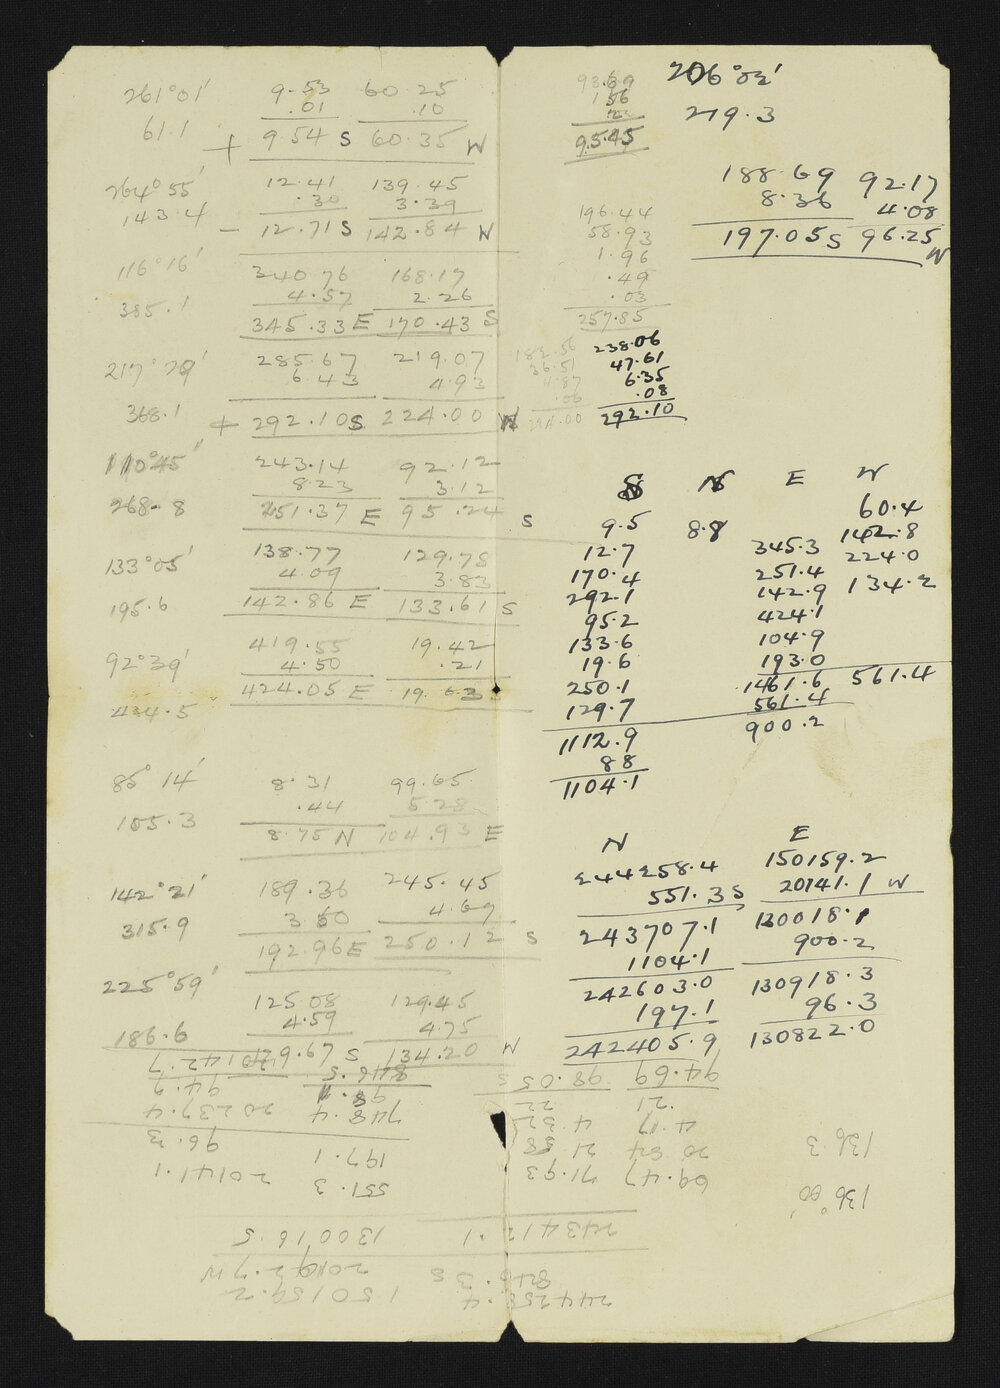 261°01′ 9.53 60.25
.01 .10
61.1 + 9.54 S 60.35 W
264°55′ 12.41 139.45
143.4 .30 3.39
– 12.71 S 142.84 W
116°16′ 340.76 168.17
4.57 2.26
385.1 345.33 E 170.43 S
217°29′ 285.67 219.07
6.43 4.93
368.1 + 292.10 S 224.00 W
110°45″ 243.14 92.12
8.23 3.12
268.8 251.37 E 95.24 S
133°05′ 138.77 129.78
4.09 3.83
195.6 142.86 E 133.61 S
92°39′ 419.55 19.42
4.50 .21
424.05 E 19.63 S
424.5
85° 14′ 8.31 99.65
.44 5.28
105.3 8.75 N 104.93 E
142°21′ 189.36 245.45
3.60 4.67
315.9 192.96 E 250.12 S
225°59′ 125.08 129.45
4.59 4.75
186.6 129.67 S 134.20 W
93.69
1.56
9.545
206°02′
219.3
188.69 92.17
8.36 4.08
197.05 S 96.25 W
196.44
58.93
1.96
.49
.03
257.85
182.56
36.51
4.87
.06
224.00
238.06
47.61
6.35
.08
292.10
S N E W
60.4
9.5 8.8 142.8
12.7 345.3 224.0
170.4 251.4 134.2
292.1 142.9
95.2 424.1
133.6 104.9
19.6 193.0
250.1 1461.6 561.4
129.7 561.4
1112.9 900.2
88
1104.1
N E
244258.4 150159.2
551.3 S 20141.1 W
243707.1 130018.1
1104.1 900.2
242603.0 130918.3
197.1 96.3
242405.9 130822.0
244258.4 150159.2
846.3 S 20142.7 W
243412.1 130016.5
136°00′
136.3
69.47 71.93
20.84 21.58
4.17 4.32
.21 .22
94.69 98.05 S
551.3 20141.1
197.1 96.3
748.4 20237.4
98.1 94.7
846.5 20142.7